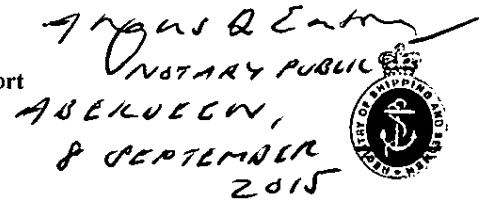 Angus
NOTARY PUBLIC
ort
ABERDEEN,
8 SEPTEMBER
2015
REGISTRY OF SHIPPING AND SEAMEN